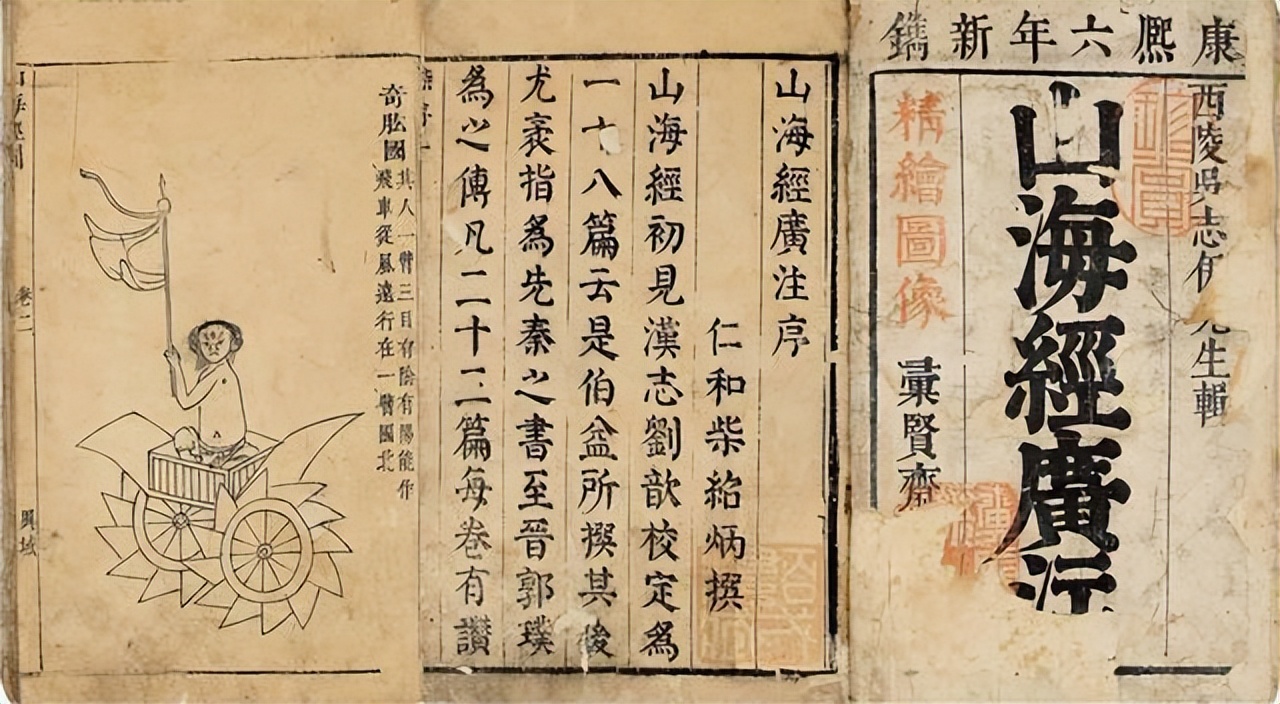 康熈六年新鐫
西陵吳志伊先生輯
山海經廣注
精繪圖像
彙賢齋
山海經廣注序
仁和柴紹炳撰
山海經初見漢志劉歆校定爲
一十八篇云是伯益所撰其後
尤袤指爲先秦之書至晉郭璞
爲之傳凡二十二篇每卷有讃
奇肱國
其人一臂三目有陰有陽能作
飛車從風遠行在一臂國北
卷二
異域